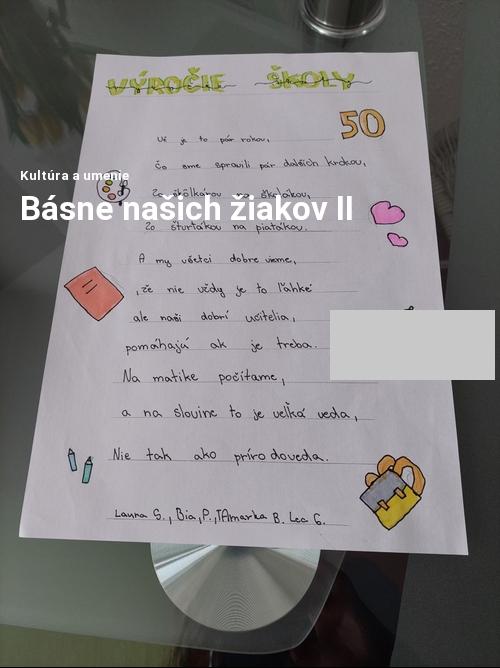 VÝROČIE ŠKOLY
50
Už je to pár rokov,
Čo sme spravili pár ďalších krokov,
Kultúra a umenie
Zo škôlkárov na školákov,
Básne našich žiakov II
Zo štvrťákov na piatakov.
A my všetci dobre vieme,
,že nie vždy je to ľahké
ale naši dobrí učitelia,
pomáhajú ak je treba.
Na matike počítame,
a na slovine to je veľká veda,
Nie tak ako prírodoveda.
Laura S., Bia,P.,TAmarka B. Lea G.